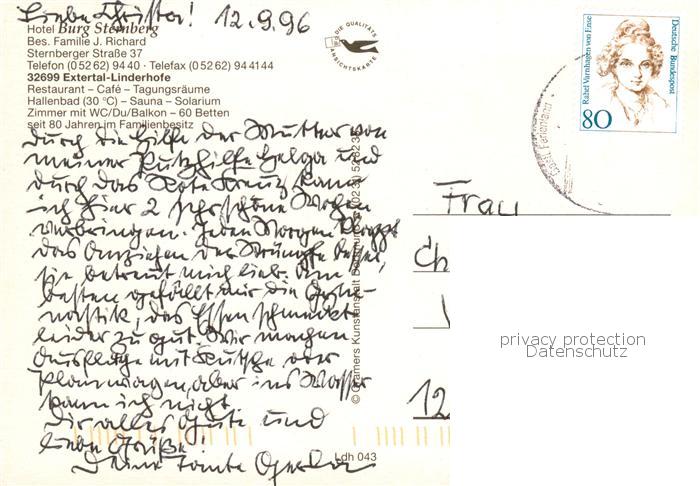 Liebe Christa! 12.9.96
Hotel Burg Sternberg
Bes. Familie J. Richard
Sternberger Straße 37
Telefon (0 52 62) 94 40 · Telefax (0 52 62) 94 41 44
32699 Extertal-Linderhofe
Restaurant – Café – Tagungsräume
Hallenbad (30 °C) – Sauna – Solarium
Zimmer mit WC/Du/Balkon – 60 Betten
seit 80 Jahren im Familienbesitz
durch die Hilfe der Mutter von
meiner Putzhilfe Helga und
durch das Rote Kreuz kann
ich hier 2 sehr schöne Wochen
verbringen. Jeden Morgen klappt
das Anziehen der Strümpfe besser,
sie betreut mich lieb. Am
besten gefällt mir die Gym-
nastik, das Essen schmeckt
leider zu gut. Wir machen
Ausflüge mit Kutsche oder
Planwagen, aber ins Wasser
kann ich nicht.
Dir alles Gute und
liebe Grüße!
Deine Tante
DIE QUALITÄTS
ANSICHTSKARTE
© Cramers Kunstanstalt
Ldh 043
Rahel Varnhagen von Ense
Deutsche Bundespost
80
Frau
Ch
12
privacy protection
Datenschutz